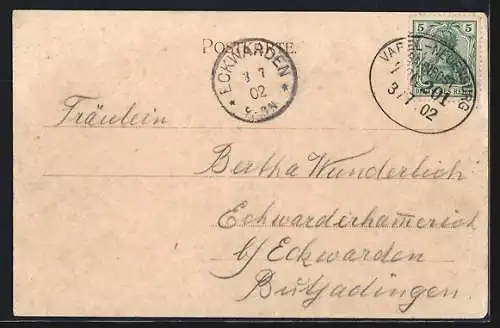 POSTKARTE.
5 5
ECKWARDEN
3 7
02
8-9N
VAREL-
3/7 02
Fräulein
Bertha Wunderlich
Eckwarderham̅erich
b/ Eckwarden
Butjadingen.